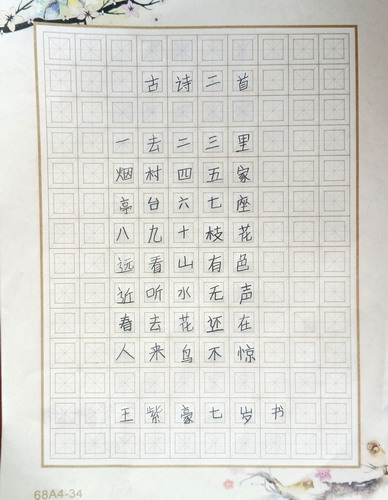 古诗二首
一去二三里
烟村四五家
亭台六七座
八九十枝花
远看山有色
近听水无声
春去花还在
人来鸟不惊
王紫豪七岁书
68A4-34